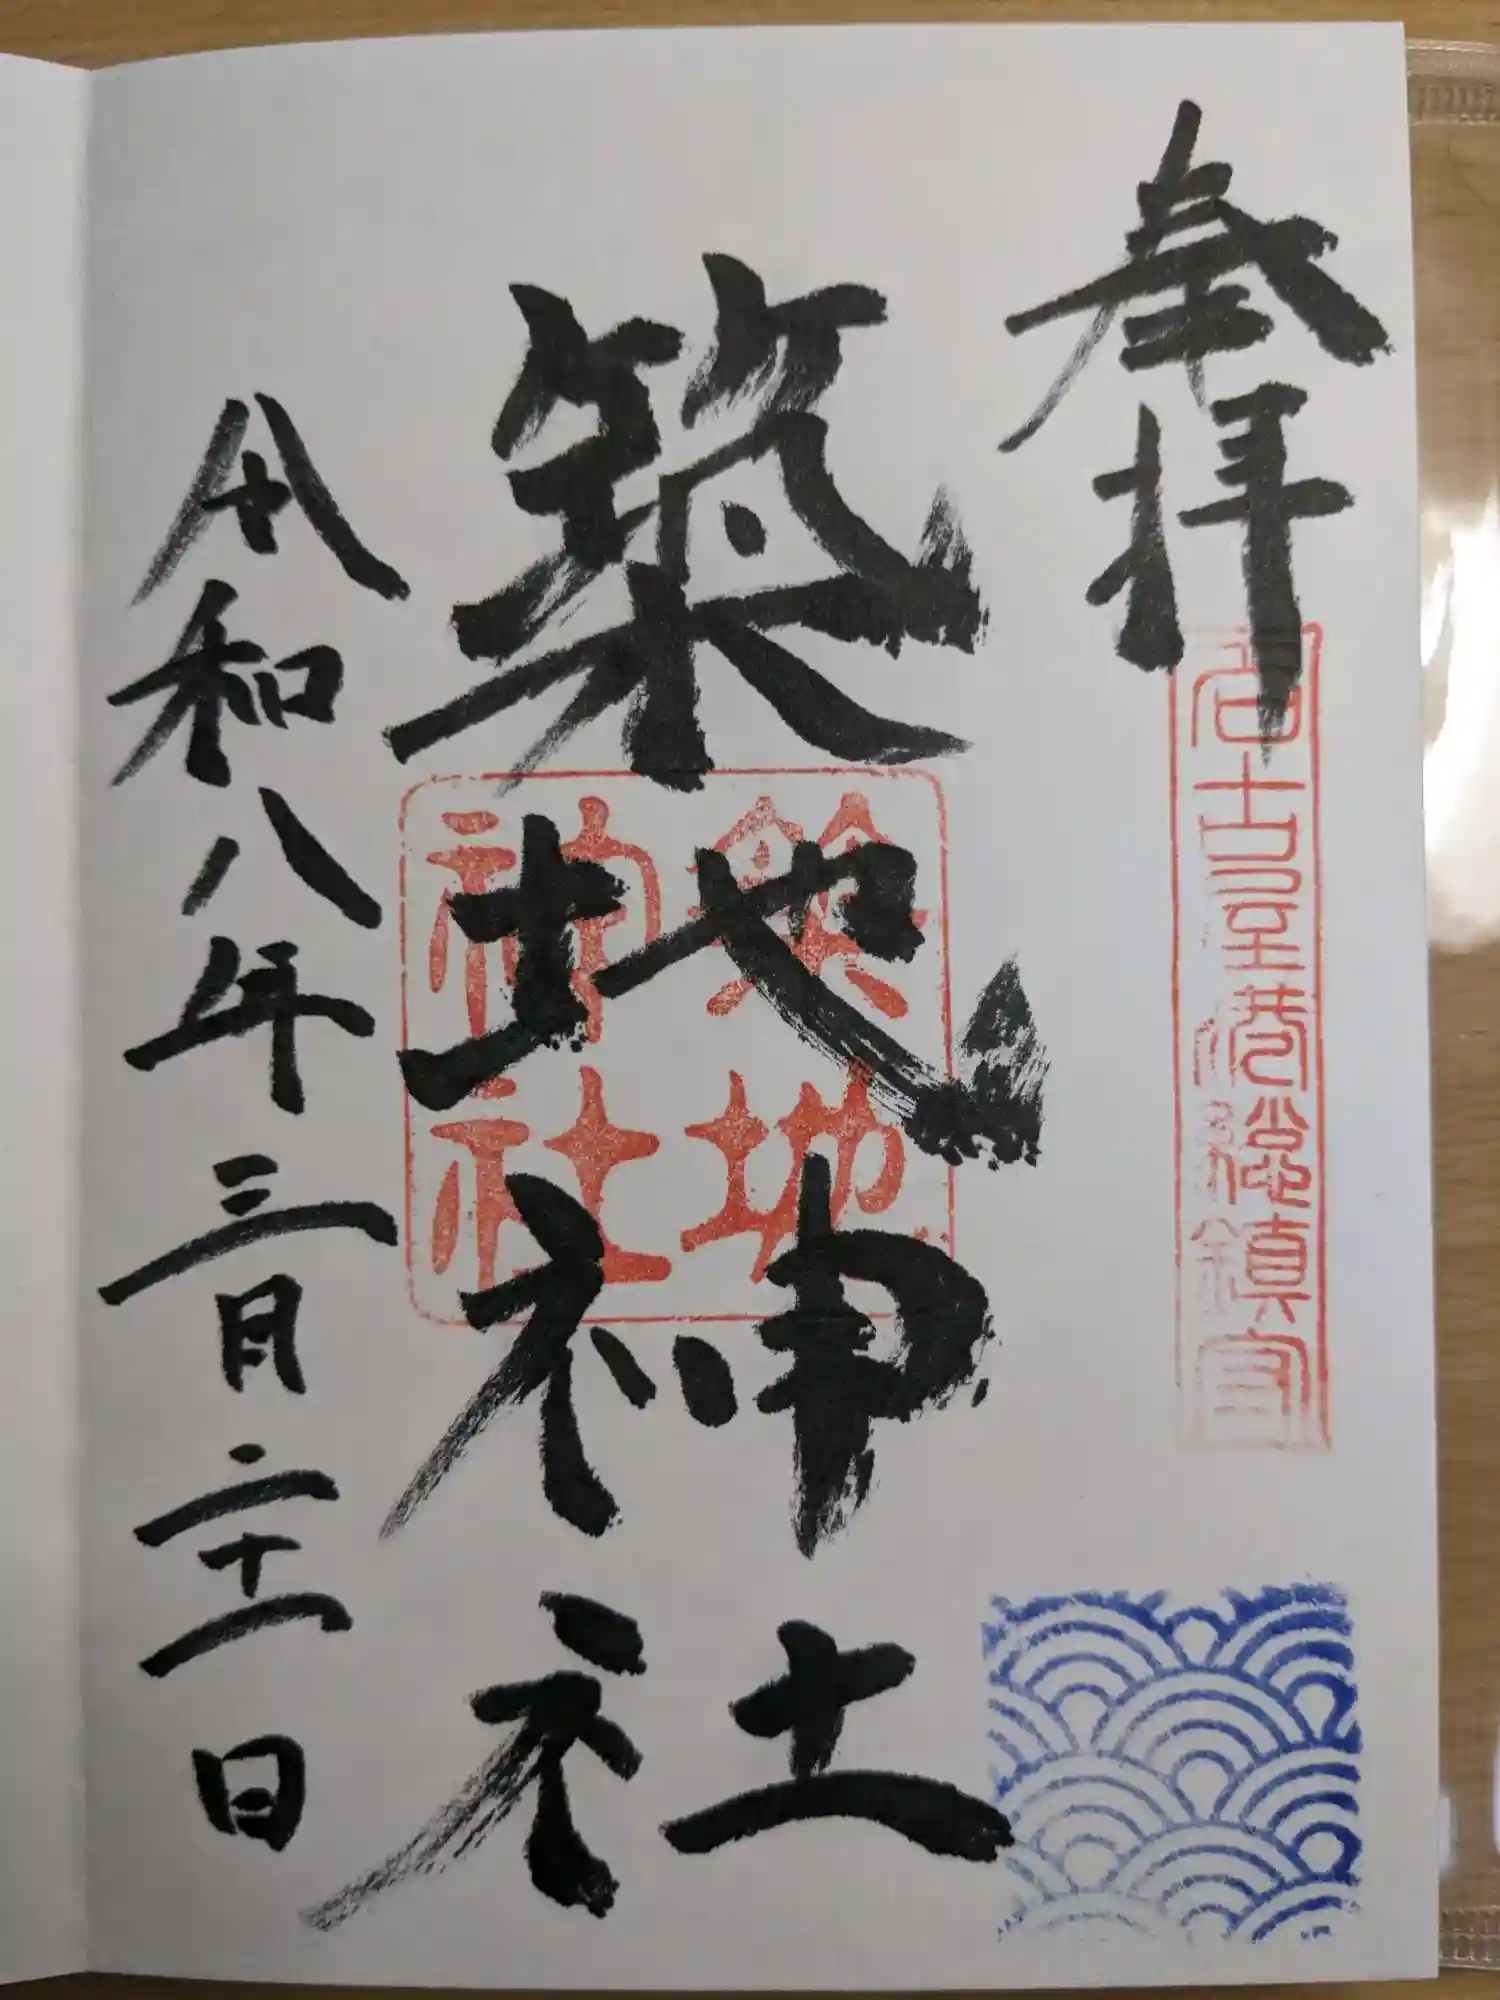 奉拝
名古屋港総鎮守
築地神社
築地
神社
令和八年三月二十一日